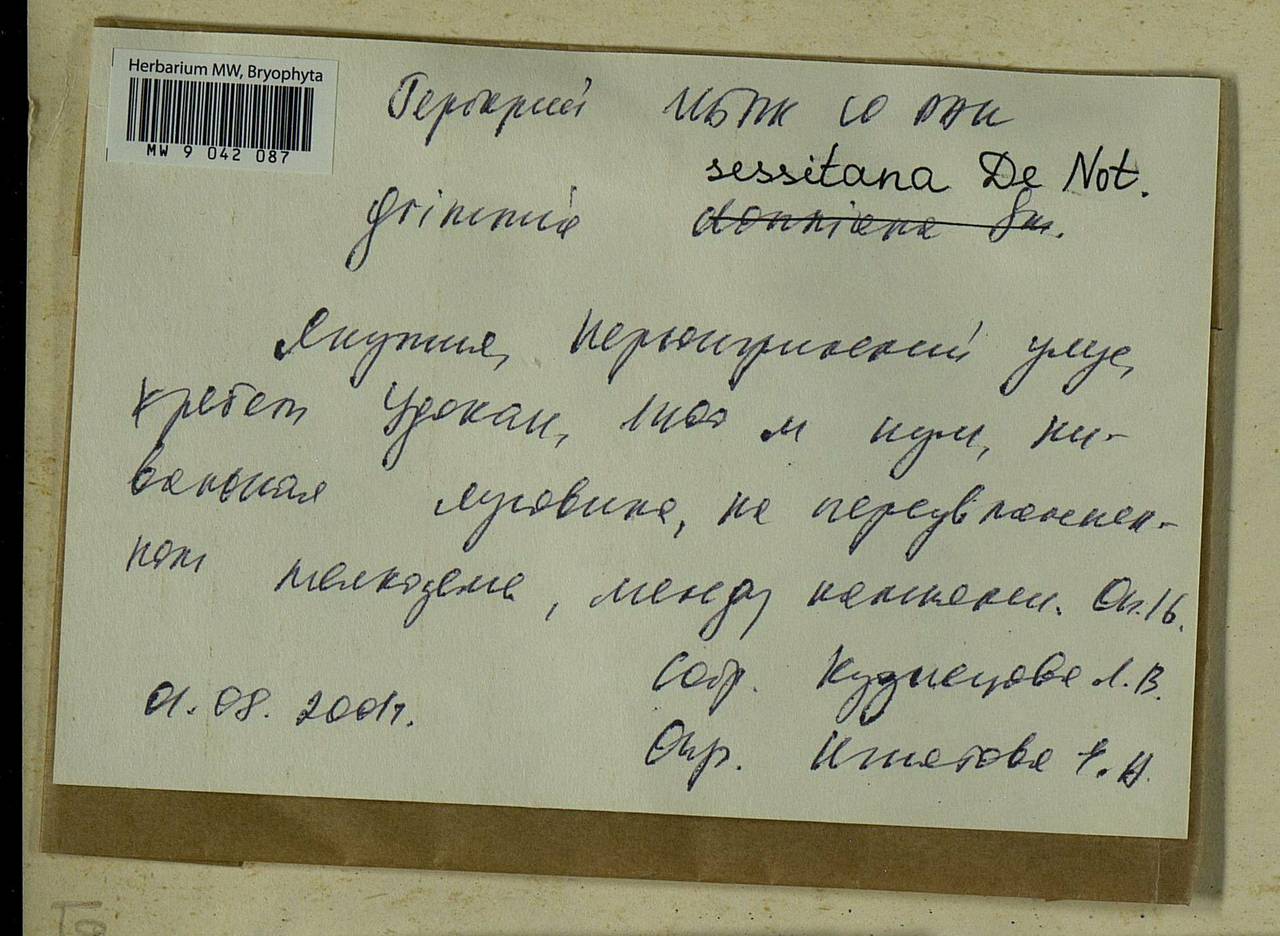 Herbarium MW, Bryophyta
MW 9 042 087
Гербарий ИБПК СО РАН
sessitana De Not.
Grimmia donniana Sm.
Якутия, Нерюнгринский улус,
хребет Удокан, м нум, ни-
вальная луговина, на переувлажнен-
ном мелкоземе, между камнями. Оп. 16.
Собр. Кузнецова Л. В.
01. 08. 2001г.
Опр. Игнатова Е. А.